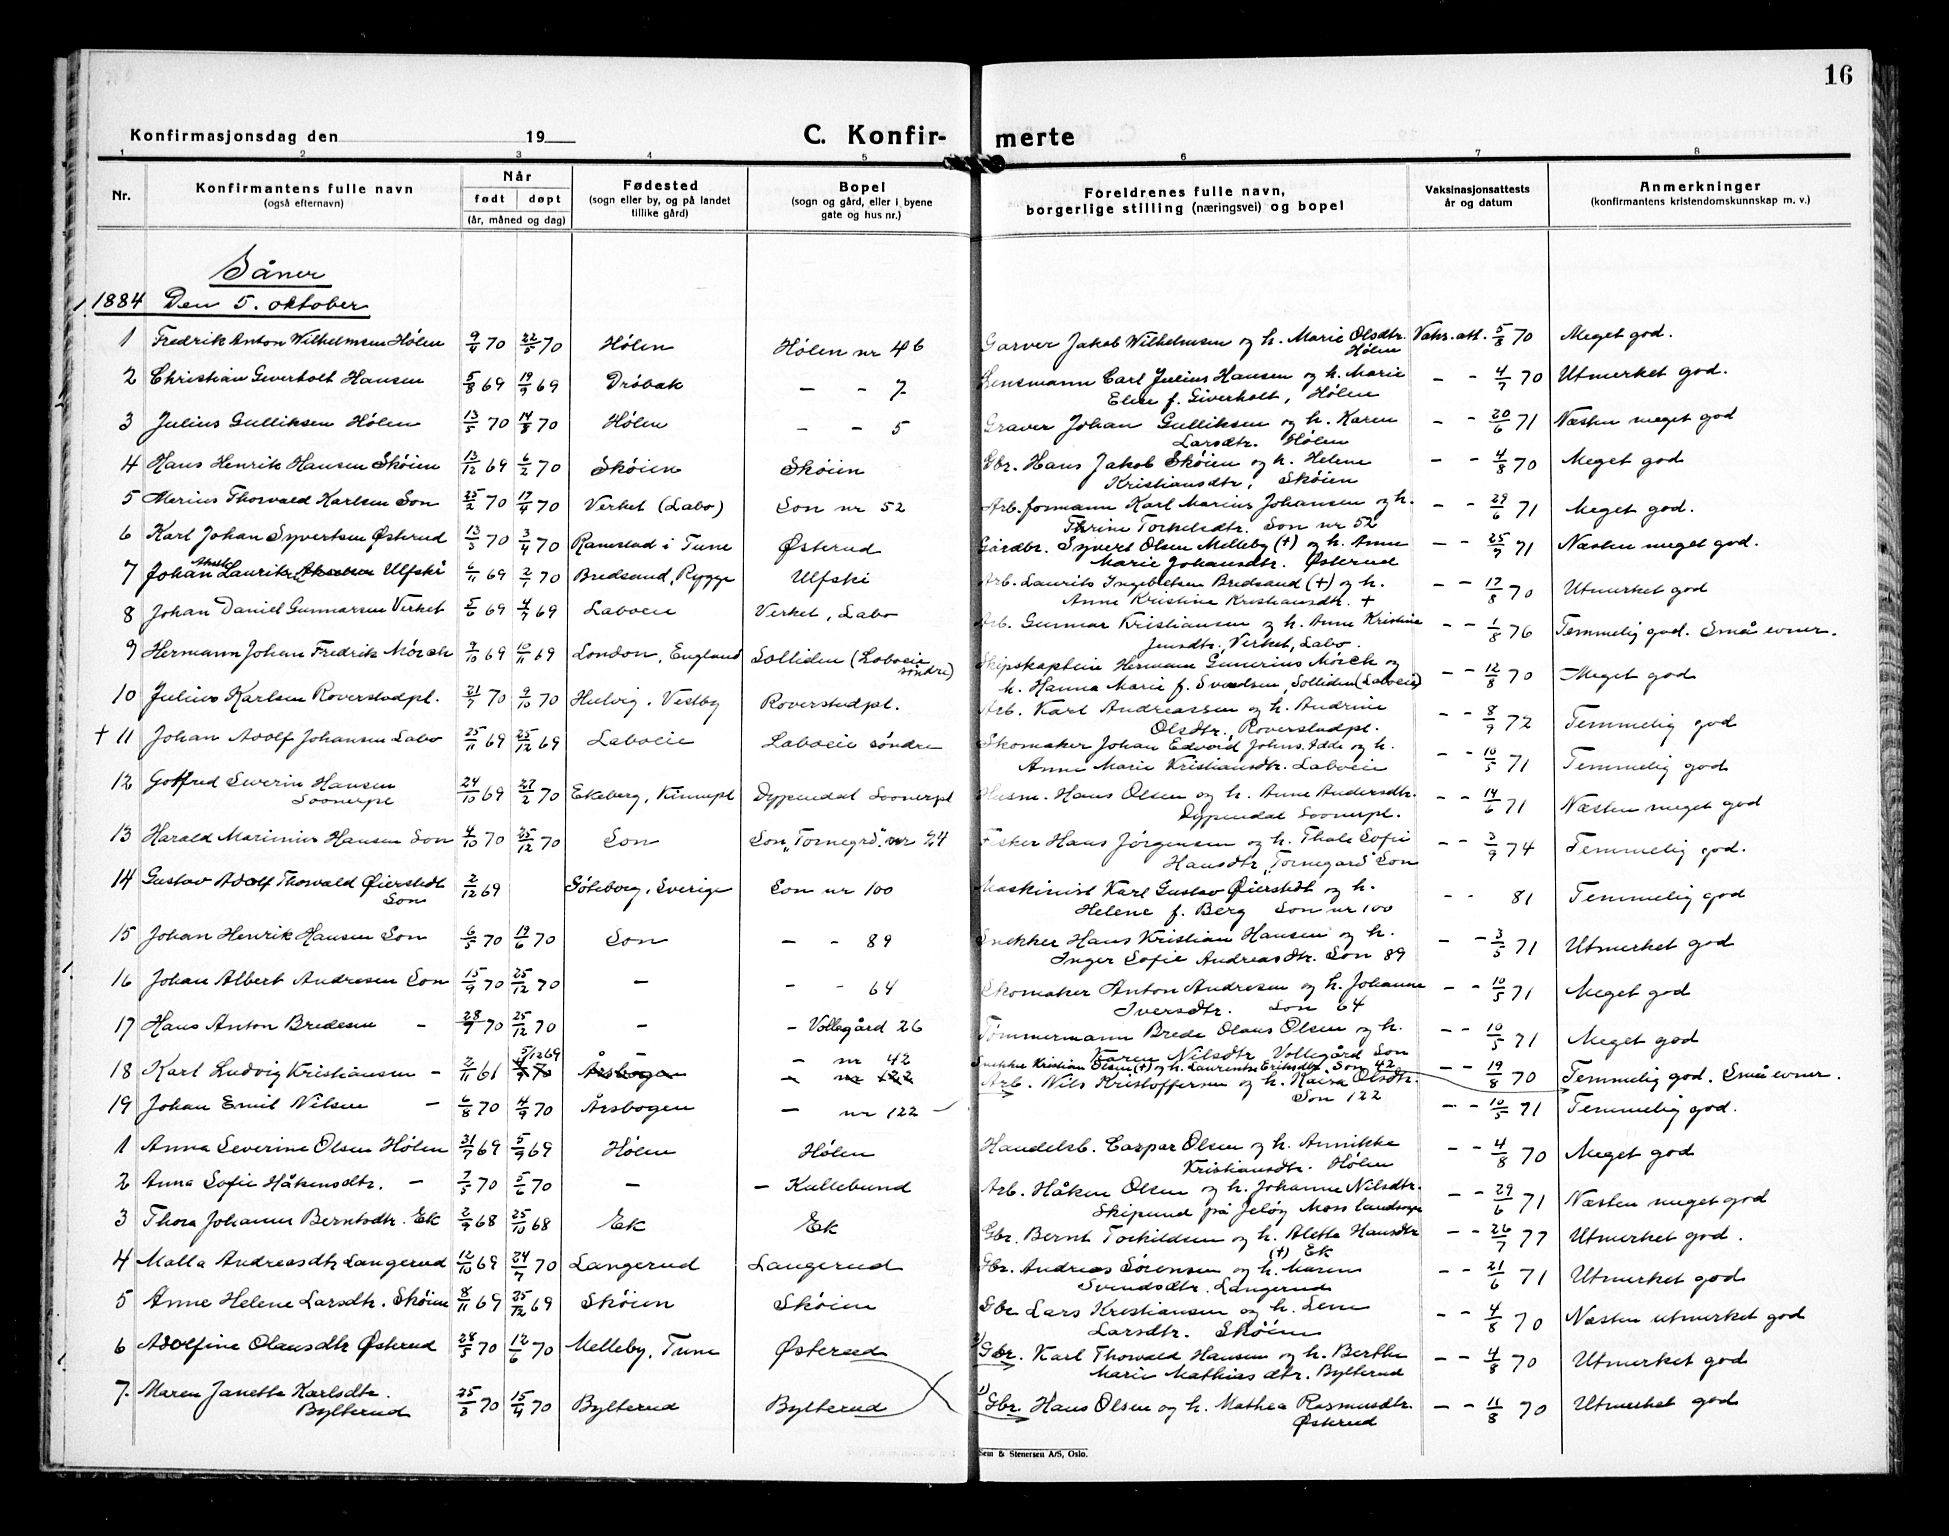 16
Konfirmasjonsdag den 19
C. Konfir- merte
1 2 3 4 5 6 7 8
Nr. Konfirmantens fulle navn (også efternavn) Når født døpt (år, måned og dag) Fødested (sogn eller by, og på landet tillike gård) Bopel (sogn og gård, eller i byene gate og hus nr.) Foreldrenes fulle navn, borgerlige stilling (næringsvei) og bopel Vaksinasjonsattests år og datum Anmerkninger (konfirmantens kristendomskunnskap m. v.)
Såner
1884 Den 5. oktober
1 Fredrik Anton Wilhelmsen Hølen 9/4 70 22/5 70 Hølen Hølen nr 46 Garver Jakob Wilhelmsen og h. Marie Olsdtr. Hølen Vaks. att. 5/8 70 Meget god.
2 Christian Geverholt Hansen 5/8 69 19/9 69 Drøbak - - 7 Lensmann Carl Julius Hansen og h. Marie Elise f. Giverholt, Hølen - - 4/7 70 Utmerket god.
3 Julius Gulliksen Hølen 13/5 70 14/8 70 Hølen - - 5 Graver Johan Gulliksen og h. Karen Larsdtr. Hølen - - 20/6 71 Næsten meget god
4 Hans Henrik Hansen Skøien 13/12 69 6/2 70 Skøien Skøien Gbr. Hans Jakob Skøien og h. Helene Kristiansdtr, Skøien - - 4/8 70 Meget god
5 Marius Thorvald Karlsen Son 25/2 70 17/4 70 Verket (Labo) Son nr 52 Arb.formann Karl Marius Johansen og h. Thrine Torkelsdtr. Son nr 52 - - 29/6 71 Meget god.
6 Karl Johan Syvertsen Østerud 13/3 70 3/4 70 Ramstad i Tune Østerud Gårdbr. Syvert Olsen Melleby (+) og h. Anne Marie Johansdtr. Østerud - - 25/9 71 Næsten meget god.
7 Johan Lauritz Ulfski 6/11 69 2/1 70 Bredsand, Rygge Ulfski Arb. Laurits Ingebretsen Bredsand (+) og h. Anne Kristine Kristiansdtr. + - - 12/8 70 Utmerket god
8 Johan Daniel Gunnarsen Verket 5/6 69 4/7 69 Laboeie Verket, Labo Arb. Gunnar Kristiansen og h. Anne Kristine Jensdtr, Verket, Labo. - - 1/8 76 Temmelig god. Små evner.
9 Hermann Johan Fredrik Mörch 9/10 69 10/11 69 London, England Solliden (Laboeie söndre) Skipskaptein Hermann Gunerius Mörch og h. Hanna Marie f. Svendsen, Solliden (Laboeie) - - 12/8 70 Meget god
10 Julius Karlsen Roverstadpl. 21/7 70 9/10 70 Hulvig, Vestby Roverstadpl. Arb. Karl Andreassen og h. Andrine Olsdtr, Roverstadpl. - - 8/9 72 Temmelig god
+ 11 Johan Adolf Johansen Labo 25/11 69 25/12 69 Laboeie Laboeie søndre Skomaker Johan Edvard Johns. Idde og h. Anne Marie Kristiansdtr. Laboeie - - 10/5 71 Temmelig god
12 Gotfred Severin Hansen Soonerpl 24/10 69 27/2 70 Ekeberg, Kinnpl Dypendal Soonerpl Husm. Hans Olsen og h. Anne Andersdtr. Dypendal Soonerpl. - - 14/6 71 Næsten meget god
13 Harald Marinius Hansen Son 4/10 70 25/12 70 Son Son „Tornegrd". nr 24 Fisker Hans Jørgensen og h. Thale Sofie Hansdtr „Tornegard" Son - - 3/9 74 Temmelig god.
14 Gustav Adolf Thorvald Øierstedt Son 2/12 69 Göteborg, Sverige Son nr 100 Maskinist Karl Gustav Øierstedt og h. Helene f. Berg Son nr 100 - - 81 Temmelig god
15 Johan Henrik Hansen Son 6/5 70 19/6 70 Son - - 89 Snekker Hans Kristian Hansen og h. Inger Sofie Andreasdtr. Son 89 - - 3/5 71 Utmerket god
16 Johan Albert Andresen Son 15/9 70 25/12 70 - - - 64 Skomaker Anton Andresen og h. Johanne Iversdtr. Son 64 - - 10/5 71 Meget god
17 Hans Anton Bredesen - 28/9 70 25/12 70 - - Vollegård 26 Tømmermann Brede Olaus Olsen og h. Karen Nilsdtr Vollegård Son - - 10/5 71 Meget god
18 Karl Ludvig Kristiansen - 2/11 61 5/12 69 - - nr 42 Snekker Kristian Olsen (+) og h. Laurentse Eriksdtr. Son 42 - - 19/8 70 Temmelig god. Små evner.
Årsbogen - nr 122 Arb. Nils Kristoffersen og h. Karen Olsdtr. Son 122
19 Johan Emil Nilsen - 6/8 70 4/9 70 Årsbogen - nr 122 - - 10/5 71 Temmelig god.
1 Anna Severine Olsen Hølen 31/7 69 5/9 69 Hølen Hølen Handelsb. Caspar Olsen og h. Annikke Kristiansdtr. Hølen - - 4/8 70 Meget god
2 Anna Sofie Håkensdtr. - 7/5 70 5/6 70 - - Kullebund Arb. Håken Olsen og h. Johanne Nilsdtr. Skipund på Jeløy Moss landsogn - - 29/6 71 Næsten meget god
3 Thora Johanne Berntsdtr. Ek 2/9 68 25/10 68 Ek Ek Gbr. Bernt Torkildsen og h. Alette Hansdtr (+) Ek - - 26/7 77 Utmerket god.
4 Malla Andreasdtr Langerud 12/10 69 24/7 70 Langerud Langerud Gbr. Andreas Sørensen og h. Maren Svendsdtr. Langerud - - 21/6 71 Utmerket god
5 Anne Helene Larsdtr. Skøien 8/11 69 25/12 69 Skøien Skøien Gbr Lars Kristiansen og h. Lene Larsdtr. Skøien - - 4/8 70 Næsten utmerket god
6 Adolfine Olausdtr Østerud 28/5 70 12/6 70 Melleby, Tune Østerud 2) Gbr. Karl Thorvald Hansen og h. Berthe Marie Mathiasdtr. Bylterud - - 4/8 70 Utmerket god
7. Maren Janette Karlsdtr. Bylterud 25/3 70 15/4 70 Bylterud Bylterud 1) Gbr. Hans Olsen og h. Mathea Rasmusdtr. Østerud - - 11/8 70 Utmerket god
Sem & Stenersen A/S, Oslo.